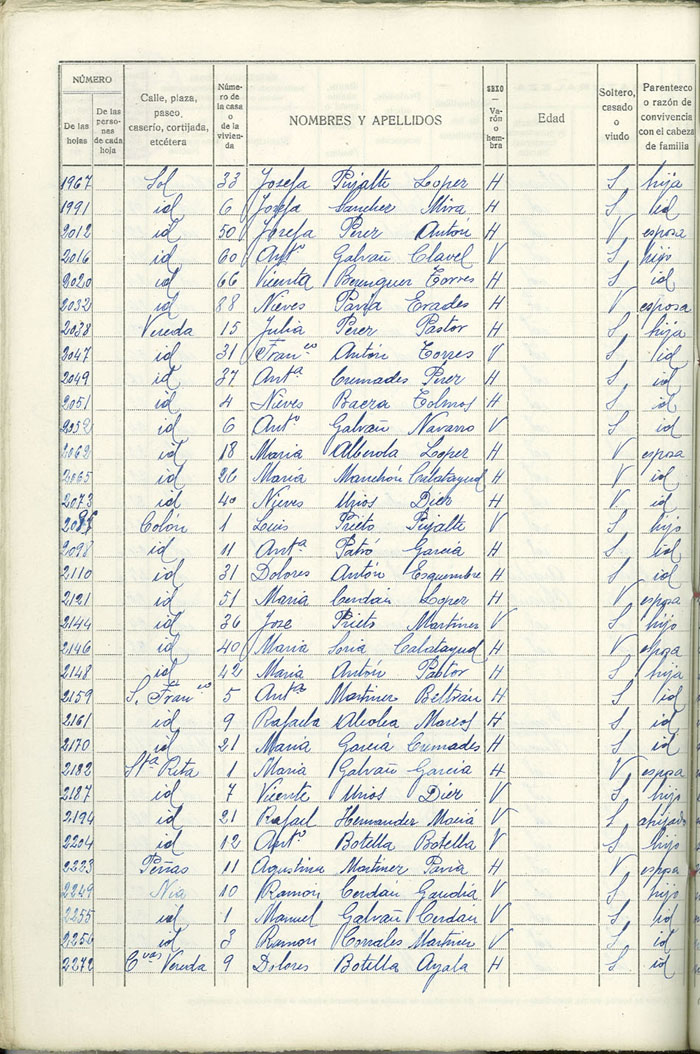 NÚMERO
De las holas
De las personas de cada hoja
Calle, plaza, paseo, caserío, cortijada, etcétera
Número de la casa o de la vivienda
NOMBRES Y APELLIDOS
SEXO — Varón o hembra
Edad
Soltero, casado o viudo
Parentesco o razón de convivencia con el cabeza de familia
1967 Sol 33 Josefa Pujalte Lopez H S hija
1991 id 6 Josefa Sanchez Mira H S id
2012 id 50 Josefa Perez Antón H V esposa
2016 id 60 Antº Galvañ Clavel V S hijo
2020 id 66 Vicenta Berenguer Torres H S id
2032 id 88 Nieves Pavia Erades H V esposa
2038 Vereda 15 Julia Perez Pastor H S hija
2047 id 31 Franco Antón Torres V S id
2049 id 37 Antª Cremades Perez H S id
2051 id 4 Nieves Baeza Tolmos H S id
2052 id 6 Antº Galvañ Navarro V S id
2062 id 18 Maria Alberola Lopez H V esposa
2065 id 26 Maria Manchón Calatayud H V id
2073 id 40 Nieves Urios Diez H V id
Colón 1 Luis Prieto Pujalte V S hijo
2098 id 11 Antª Patró Garcia H S id
2110 id 31 Dolores Antón Esquembre H S id
2121 id 51 Maria Cerdán Lopez H V esposa
2144 id 36 Jose Prieto Martinez V S hijo
2146 id 40 Maria Soria Calatayud H V esposa
2148 id 42 Maria Antón Pastor H S hija
2159 S. Franco 5 Antª Martinez Beltrán H S id
2161 id 9 Rafaela Alcolea Marcos H S id
2170 id 21 Maria Garcia Cremades H S id
2182 Stª Rita 1 Maria Galvañ Garcia H V esposa
2187 id 7 Vicente Urios Diez V S hijo
2194 id 21 Rafael Hernandez Maciá V S
2204 id 12 Antº Botella Botella V S hijo
2223 Peñas 11 Agustina Martinez Pavia H V esposa
2249 10 Ramon Cerdán Gandia V S hijo
2255 id 1 Manuel Galvañ Cerdán V S id
2256 id 3 Ramon Corrales Martinez V S id
2272 Cvas Vereda 9 Dolores Botella Ayala H S id